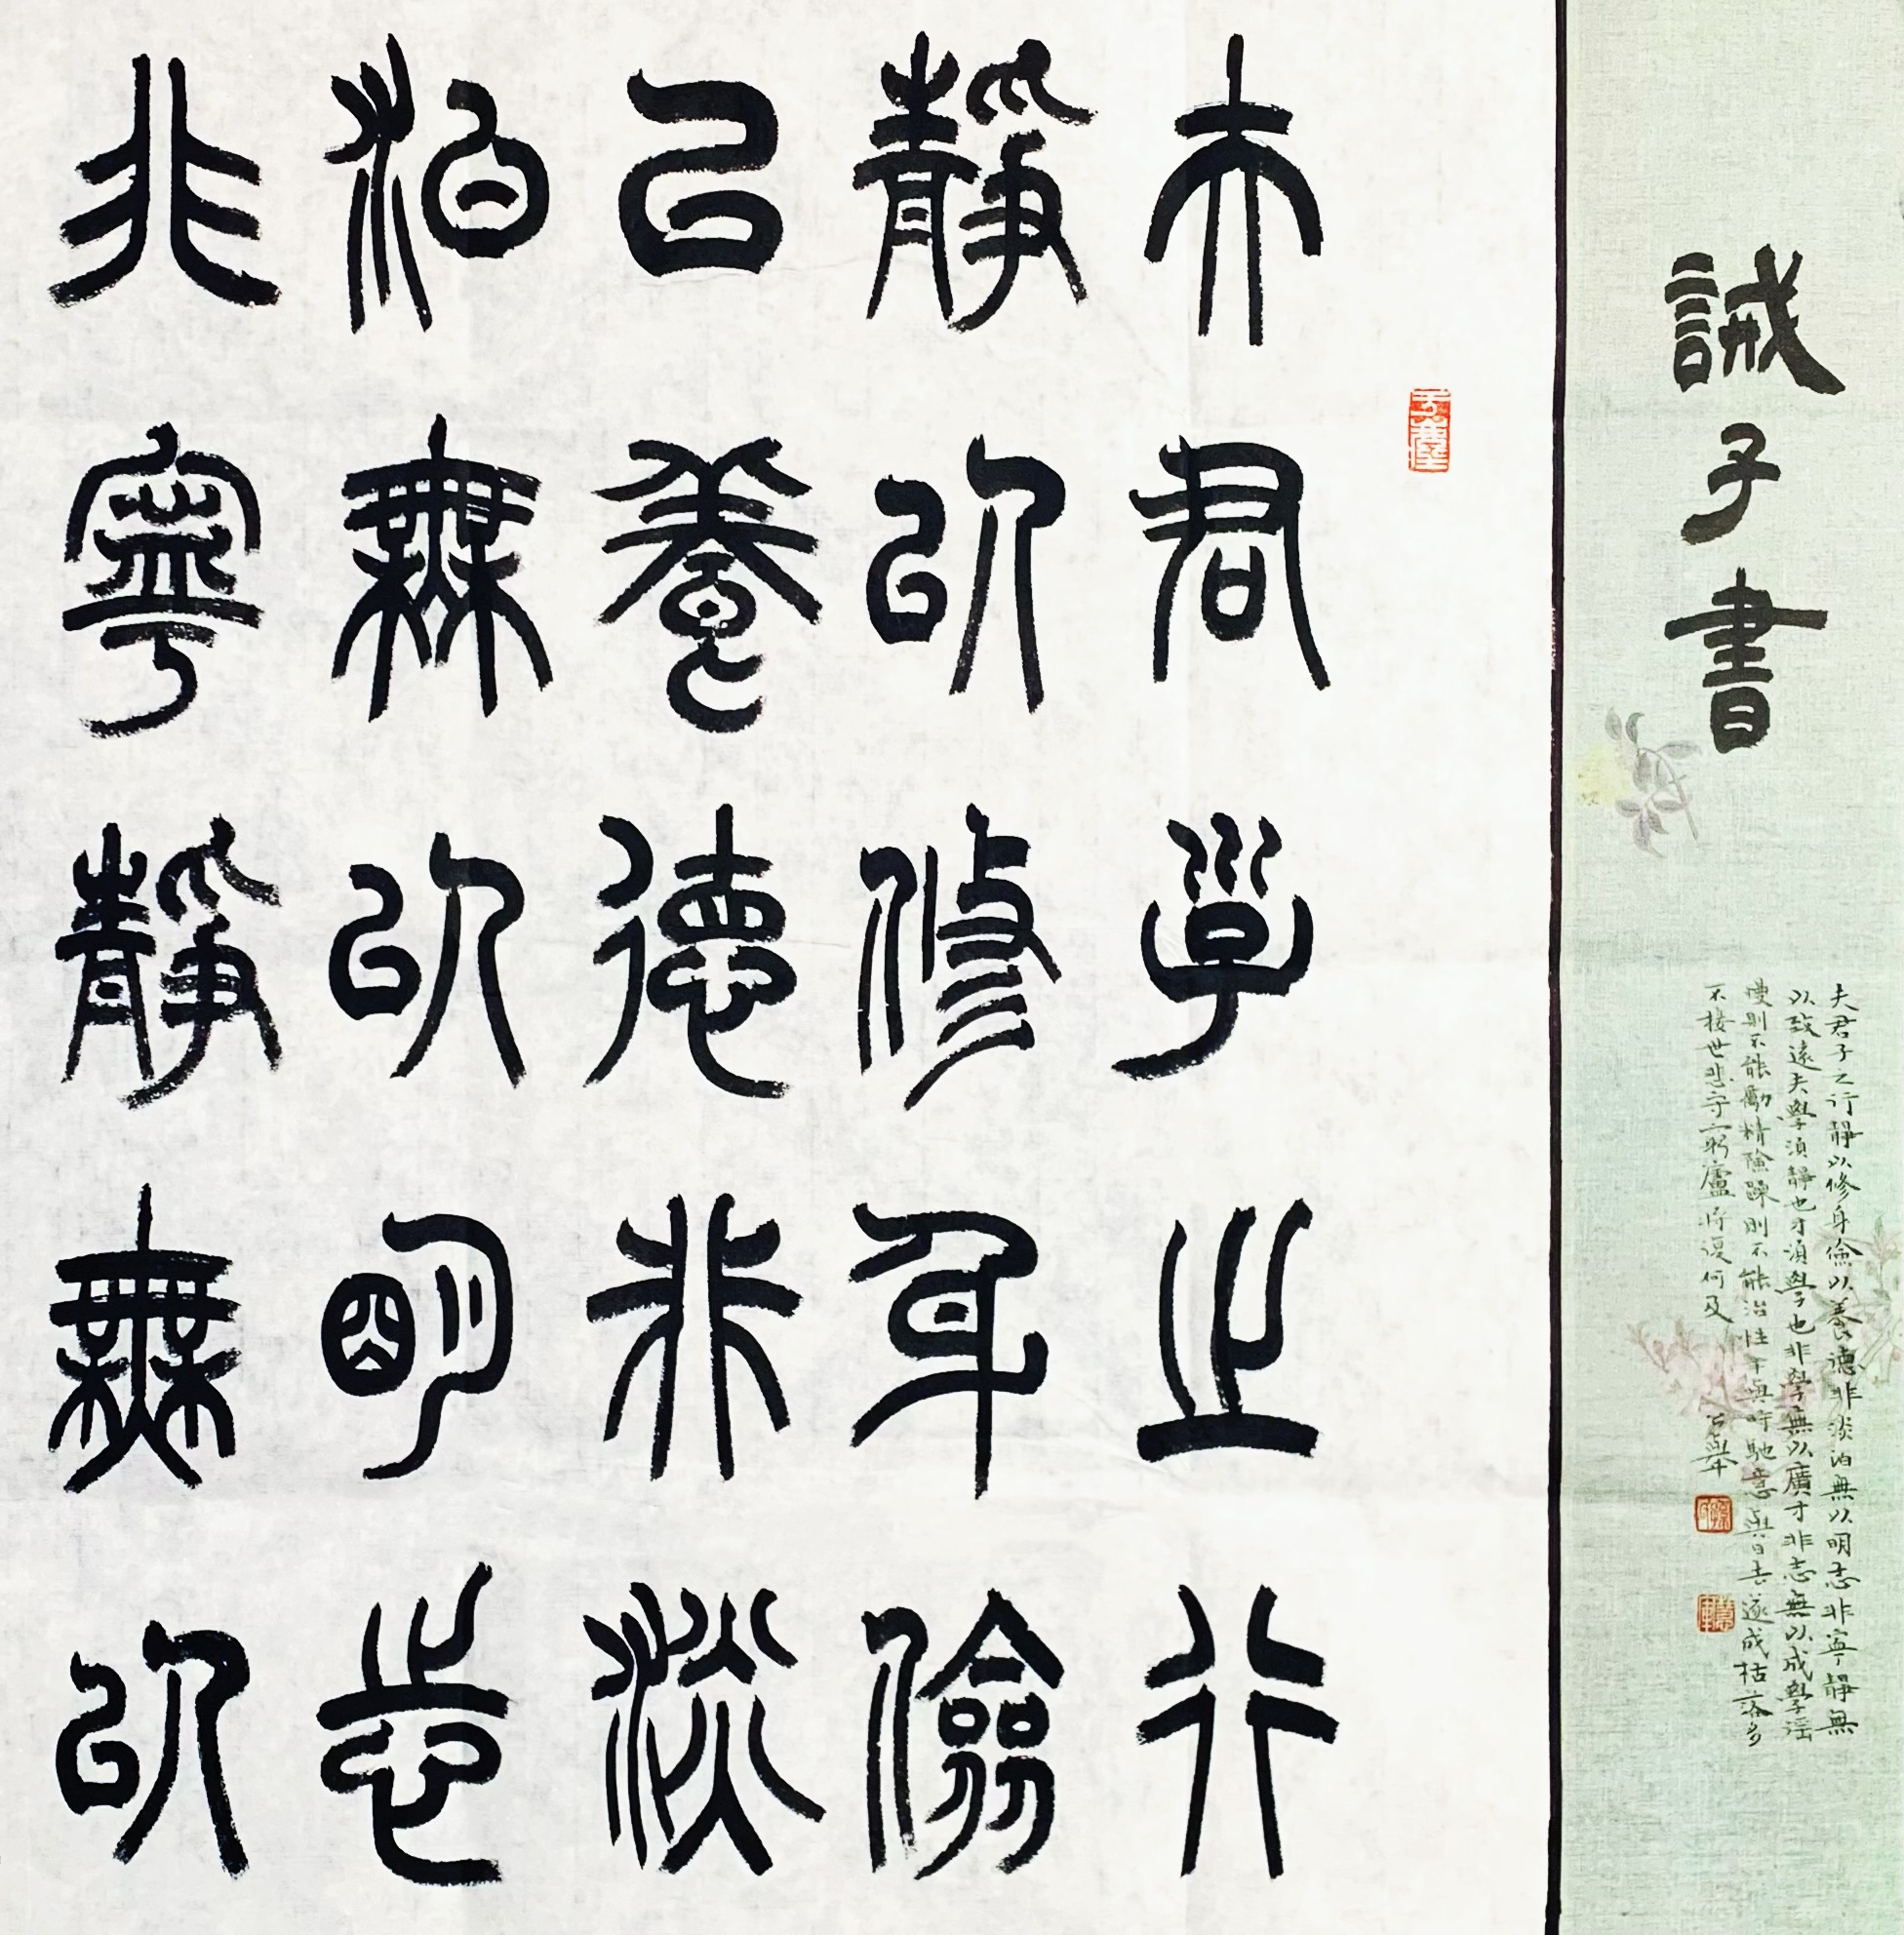 誡子書
夫君子之行靜以修身儉以養德非淡泊無以明志非寧靜無
以致遠夫學須靜也才須學也非學無以廣才非志無以成學淫
慢則不能勵精險躁則不能治性年與時馳意與日去遂成枯落多
不接世悲守窮廬將復何及
夫君子之行
靜以修身儉
以養德非淡
泊無以明志
非寧靜無以